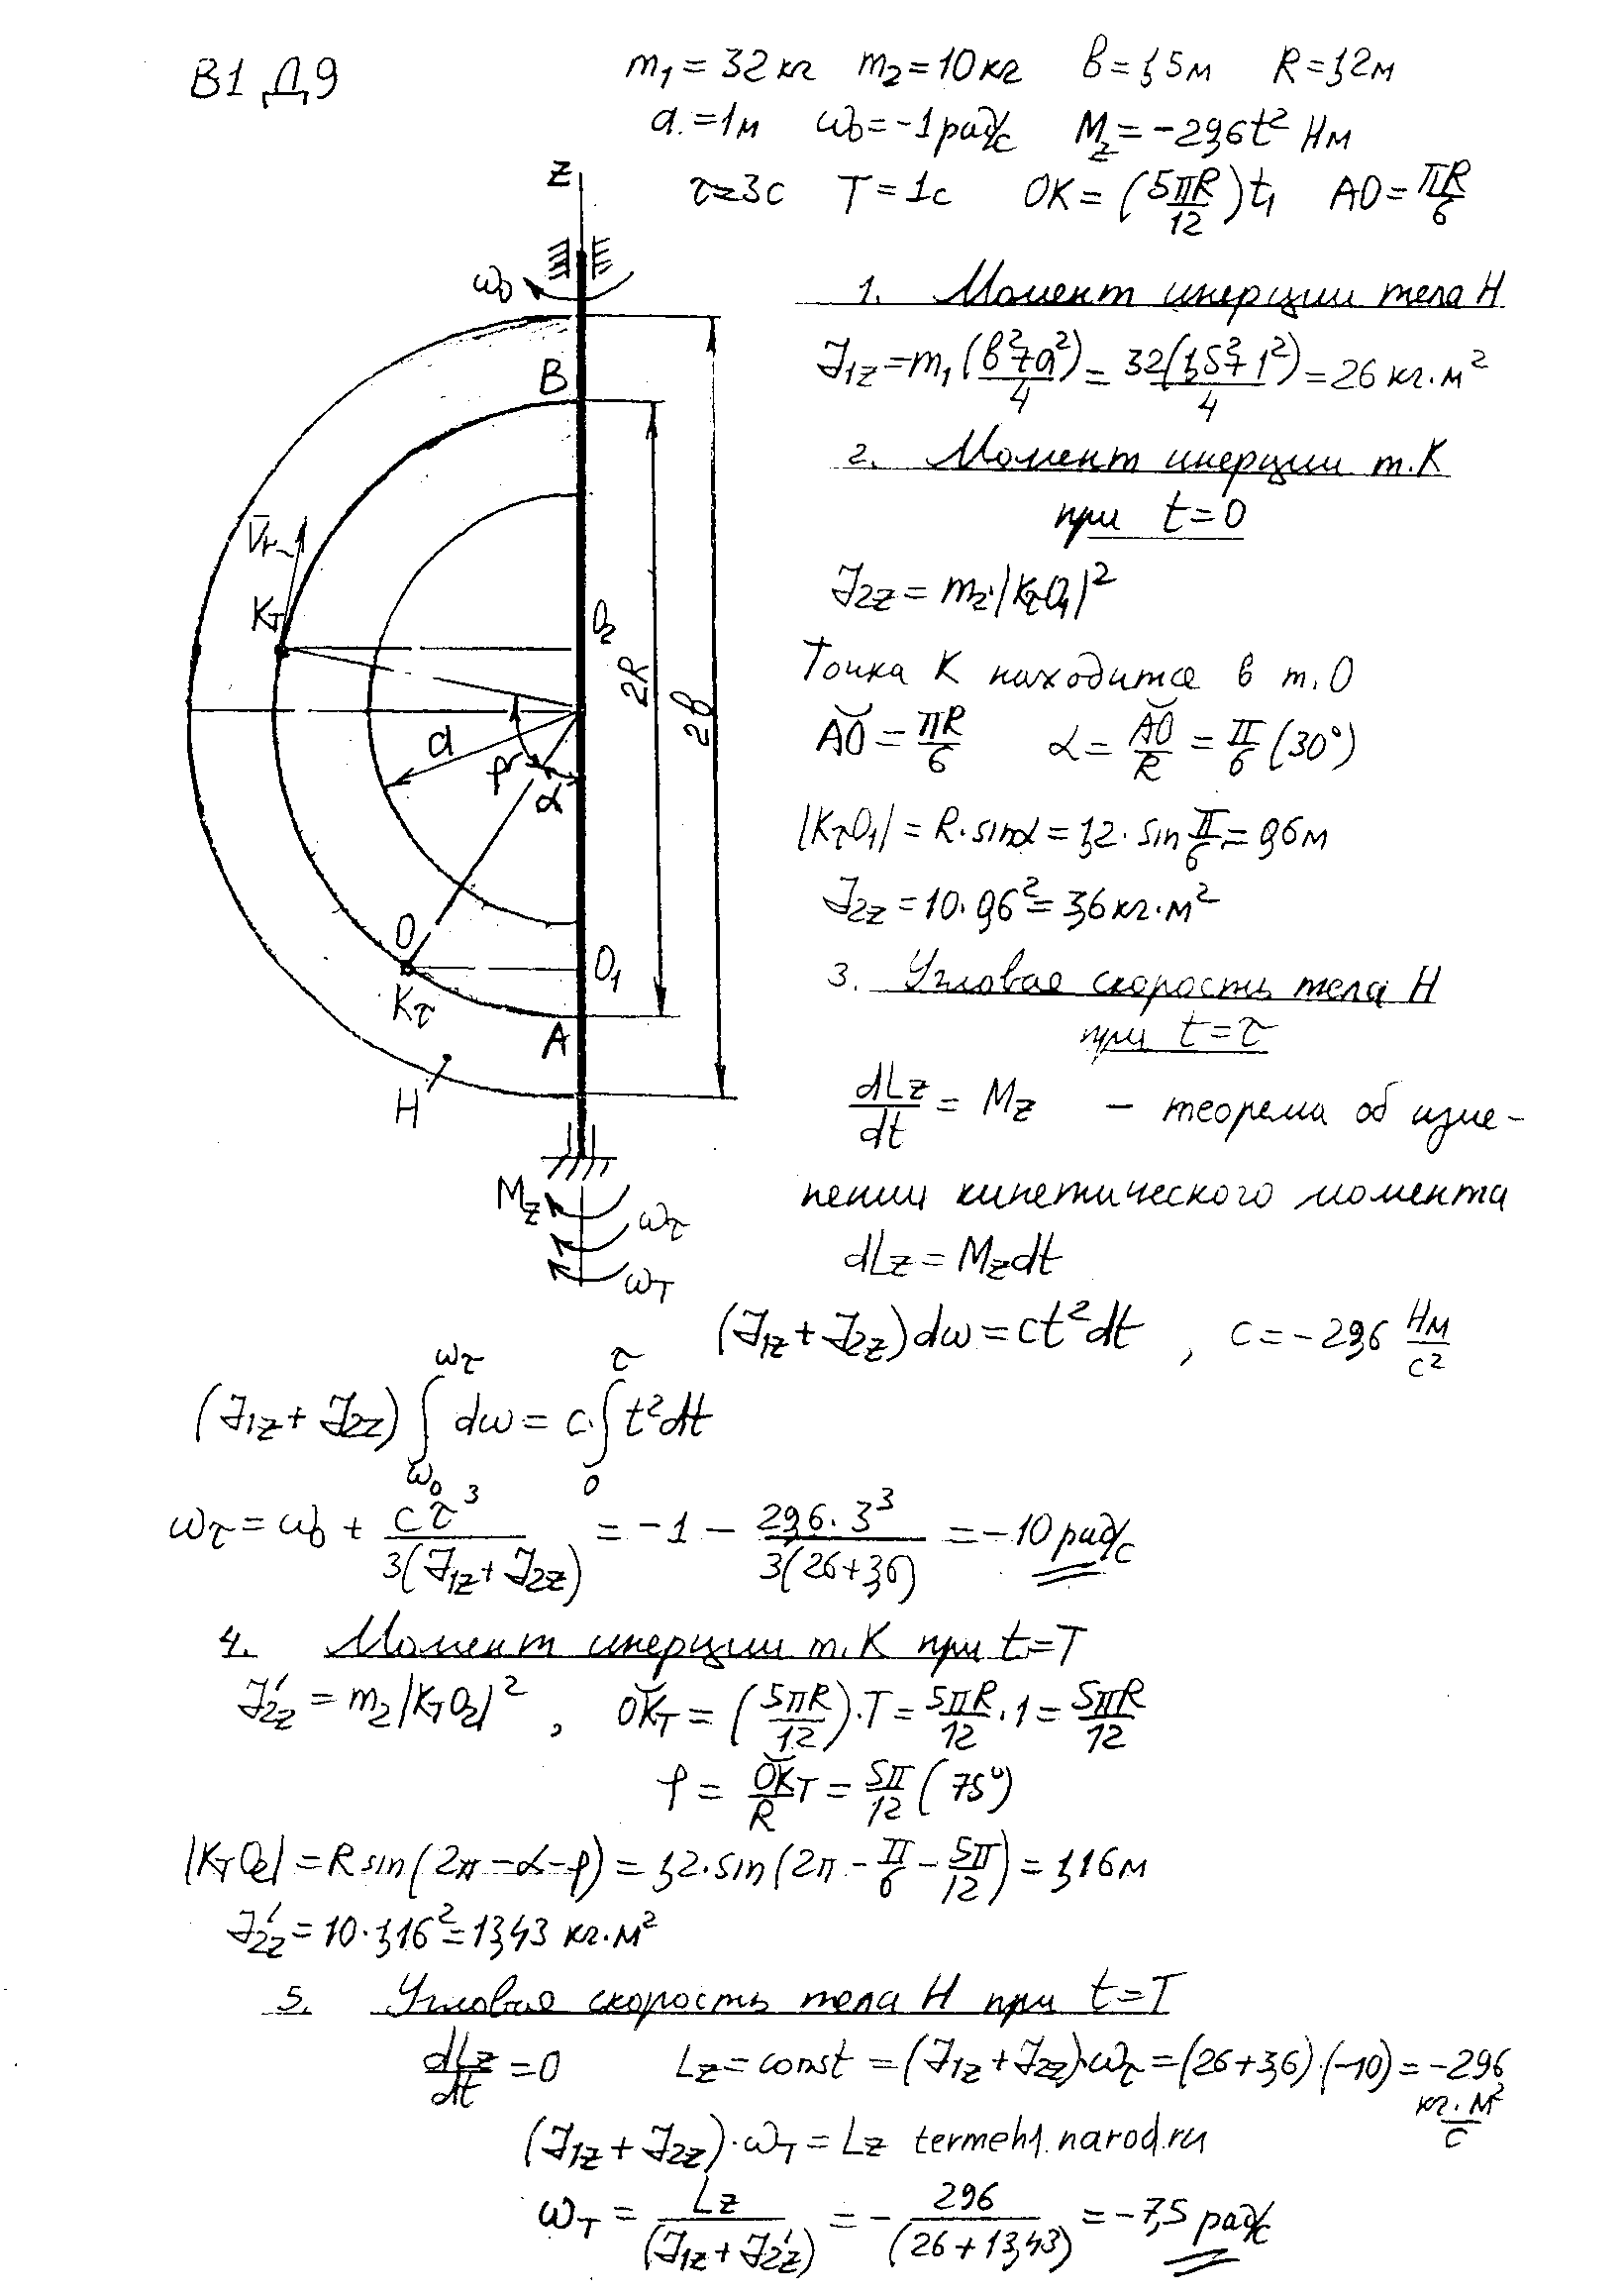 В1 Д9
m₁ = 32 кг m₂ = 10 кг в = 1,5 м R = 1,2 м
a = 1 м ω₀ = -1 рад/с M_z = -29,6t² Нм
τ = 3 с T = 1 с OK = (5πR/12)t₁ AO = πR/6
z
ω₀
B
V̄r
K_T
O₂
2R
2в
a
φ
α
O
K_τ
O₁
A
H
M_z
ω_τ
ω_T
1. Момент инерции тела H
J₁z = m₁(в²+a²)/4 = 32(1,5²+1²)/4 = 26 кг·м²
2. Момент инерции т. K
при t = 0
J₂z = m₂·|K_τO₁|²
Точка K находится в т. O
A͝O = πR/6 α = A͝O/R = π/6 (30°)
|K_τO₁| = R·sinα = 1,2·sin π/6 = 0,6 м
J₂z = 10·0,6² = 3,6 кг·м²
3. Угловая скорость тела H
при t = τ
dLz/dt = Mz – теорема об изме-
нении кинетического момента
dLz = Mzdt
(J₁z + J₂z)dω = ct²dt , c = -29,6 Нм/с²
(J₁z + J₂z) ∫_{ω₀}^{ω_τ} dω = c·∫₀^τ t²dt
ω_τ = ω₀ + cτ³/3(J₁z + J₂z) = -1 - 29,6·3³/3(26+3,6) = -10 рад/с
4. Момент инерции т. K при t = T
J₂z' = m₂|K_TO₂|² , O͝K_T = (5πR/12)·T = 5πR/12·1 = 5πR/12
φ = O͝K_T/R = 5π/12 (75°)
|K_TO₂| = R sin(2π - α - φ) = 1,2·sin(2π - π/6 - 5π/12) = 1,16 м
J₂z' = 10·1,16² = 13,43 кг·м²
5. Угловая скорость тела H при t = T
dLz/dt = 0 Lz = const = (J₁z + J₂z)·ω_τ = (26+3,6)·(-10) = -296 кг·м²/с
(J₁z + J₂z)·ω_T = Lz termeh1.narod.ru
ω_T = Lz/(J₁z + J₂z') = - 296/(26+13,43) = -7,5 рад/с